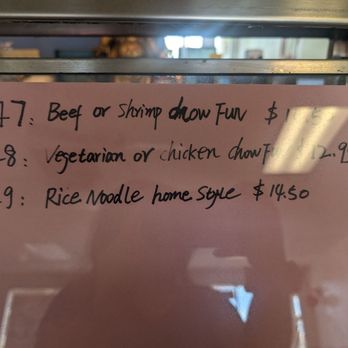 47: Beef or Shrimp chow Fun $
8: Vegetarian or chicken chow 12.9
9: Rice Noodle home Style $14.50